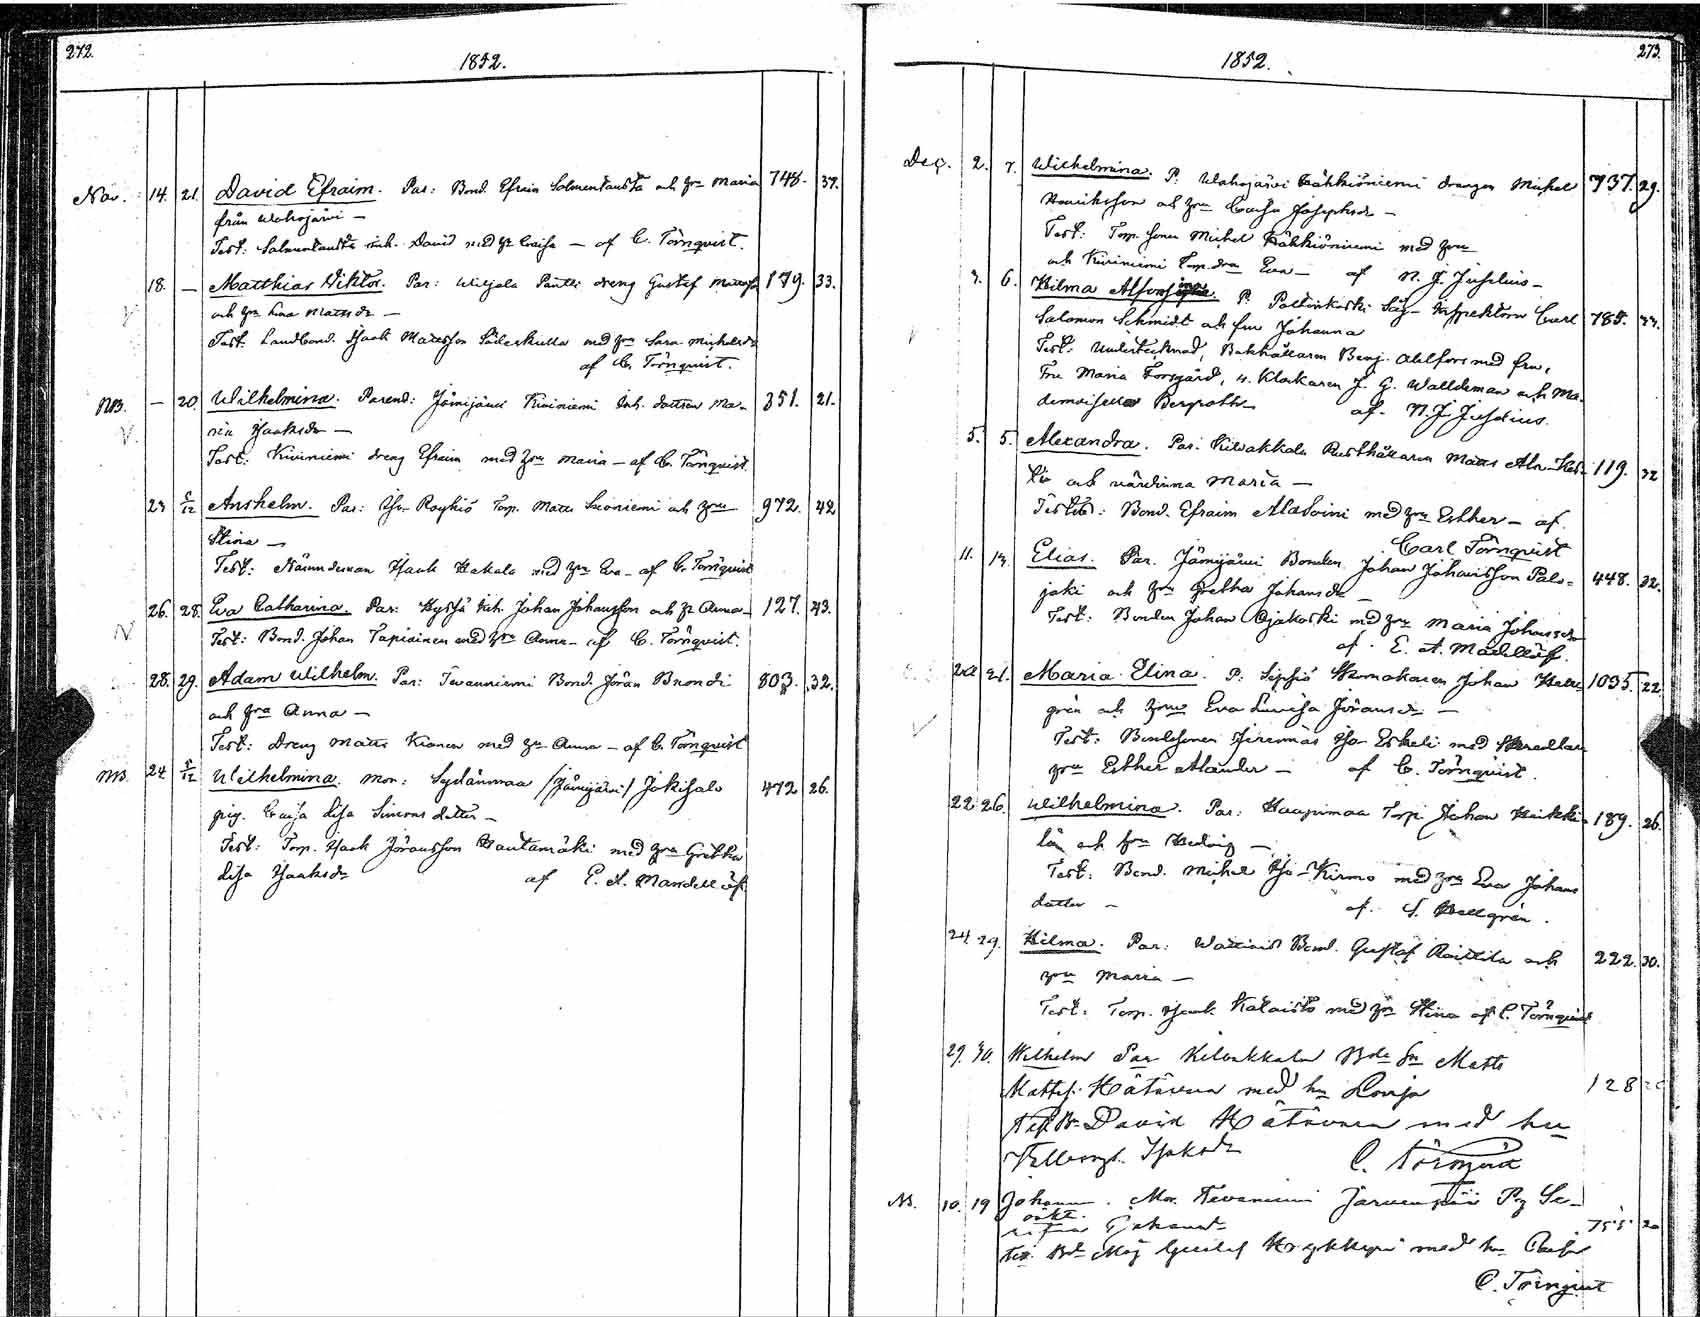 272.
1852.
Nov. 14. 21. David Efraim. Par: Bond. Efraim Salmentausta och hu Maria 748. 37.
från Wahojärvi —
Test: Salmentausta inh. David med hu Caisa — af C. Törnqvist.
18. — Matthias Wiktor. Par: Wiljala Pänttı dreng Gustaf Mattss. 179. 33.
och hu Lisa Mattsdr —
Test: Landbond. Isaak Matsson Söderkulla med hu Sara Michelsdr
af C. Törnqvist.
NB. — 20. Wilhelmina. Parend: Jämijärvi Kiviniemi Inh. dottren Ma- 351. 21.
ria Isaaksdr —
Test: Kiviniemi dreng Efraim med hu Maria — af C. Törnqvist.
23 5/12 Anshelm. Par: Röyhiö Torp. Matts Isoniemi och hu 972. 42
Stina —
Test: Nämndeman Isaak Hakala med hu Eva — af C. Törnqvist
26. 28. Eva Catharina. Par: Kyssä Inh. Johan Johansson och h. Anna — 127. 43.
Test: Bond. Johan Tapiainen med hu Anna — af C. Törnqvist.
28. 29. Adam Wilhelm. Par: Tevanniemi Bond. Jöran Buondi 803. 32.
och hu Anna —
Test: Dreng Matts Kianen med hu Anna — af C. Törnqvist
NB 24. 5/12 Wilhelmina. Mor: Sydänmaa /Jämijärvi/ Jokisalo 472 26.
pig. Caisa Lisa Simonsdotter —
Test: Torp. Isaak Jöransson Hautamäki med hu Gretha
Lisa Isaaksdr af E. A. Mandellöf
273.
1852.
Dec. 2. 7. Wilhelmina. P. Wahojärvi drengen Michel 737. 29.
Henriksson och hu Caisa Josephsdr —
Test: Torp. sonen Michel med hu
och Kiviniemi Torp. dra Eva — af N. J. Juselius —
3. 6. Hilma Alfonsina. P. Poltinkoski Såg-Inspektorn Carl 785. 33.
Salomon Schmidt och fru Johanna
Test: Undertecknad, Bokhållaren Benj. Ahlfors med fru,
Fru Maria Forsgård, u. Klockaren J. G. Walldeman och Ma-
demoiselle Bergroth af. N. J. Juselius.
5. 5. Alexandra. Par: Kilvakkala Rusthållaren Matts Ala-Kes- 119. 32
ti och värdinna Maria —
Testes: Bond. Efraim Alasoini med hu Esther — af
Carl Törnqvist
11. 13. Elias. Par. Jämijärvi Bonden Johan Johansson Palo- 448. 32.
joki och hu Gretha Johansdr —
Test: Bonden Johan Ojakoski med hu Maria Johansdr
af. E. A. Mandellöf.
21. Maria Elina. P: Sipsiö Skomakaren Johan Hell- 1035. 22
grén och hu Eva Lovisa Jöransdr —
Test: Bondesonen Jeremias Iso-Eskeli med
hu Esther Alander — af C. Törnqvist.
22. 26. Wilhelmina. Par: Haapimaa Torp. Johan Heikki- 189. 26.
lä och hu Hedvig —
Test: Bond. Michel Iso-Kirmo med hu Eva Johans
dotter — af. S. Hellgrén.
24. 29. Hilma. Par: Bond. Gustaf Raittila och 222. 30.
hu Maria —
Test: Torp. Isaak Kalaisto med hu Stina af C. Törnqvist
29. 30. Wilhelm Par Kilvakkala Bde Sn Matts
Mattss. Hätönen med hu Lovisa 128
Test. Bn David Hätönen med hu
Isaksdr C. Törnqvist
NB. 10. 19 Johanna. Mor. Tevaniemi Järvenpää Pig Se-
oäkt.
rafina 755 20
Test. Gustaf med hu Caisa
C. Törnqvist